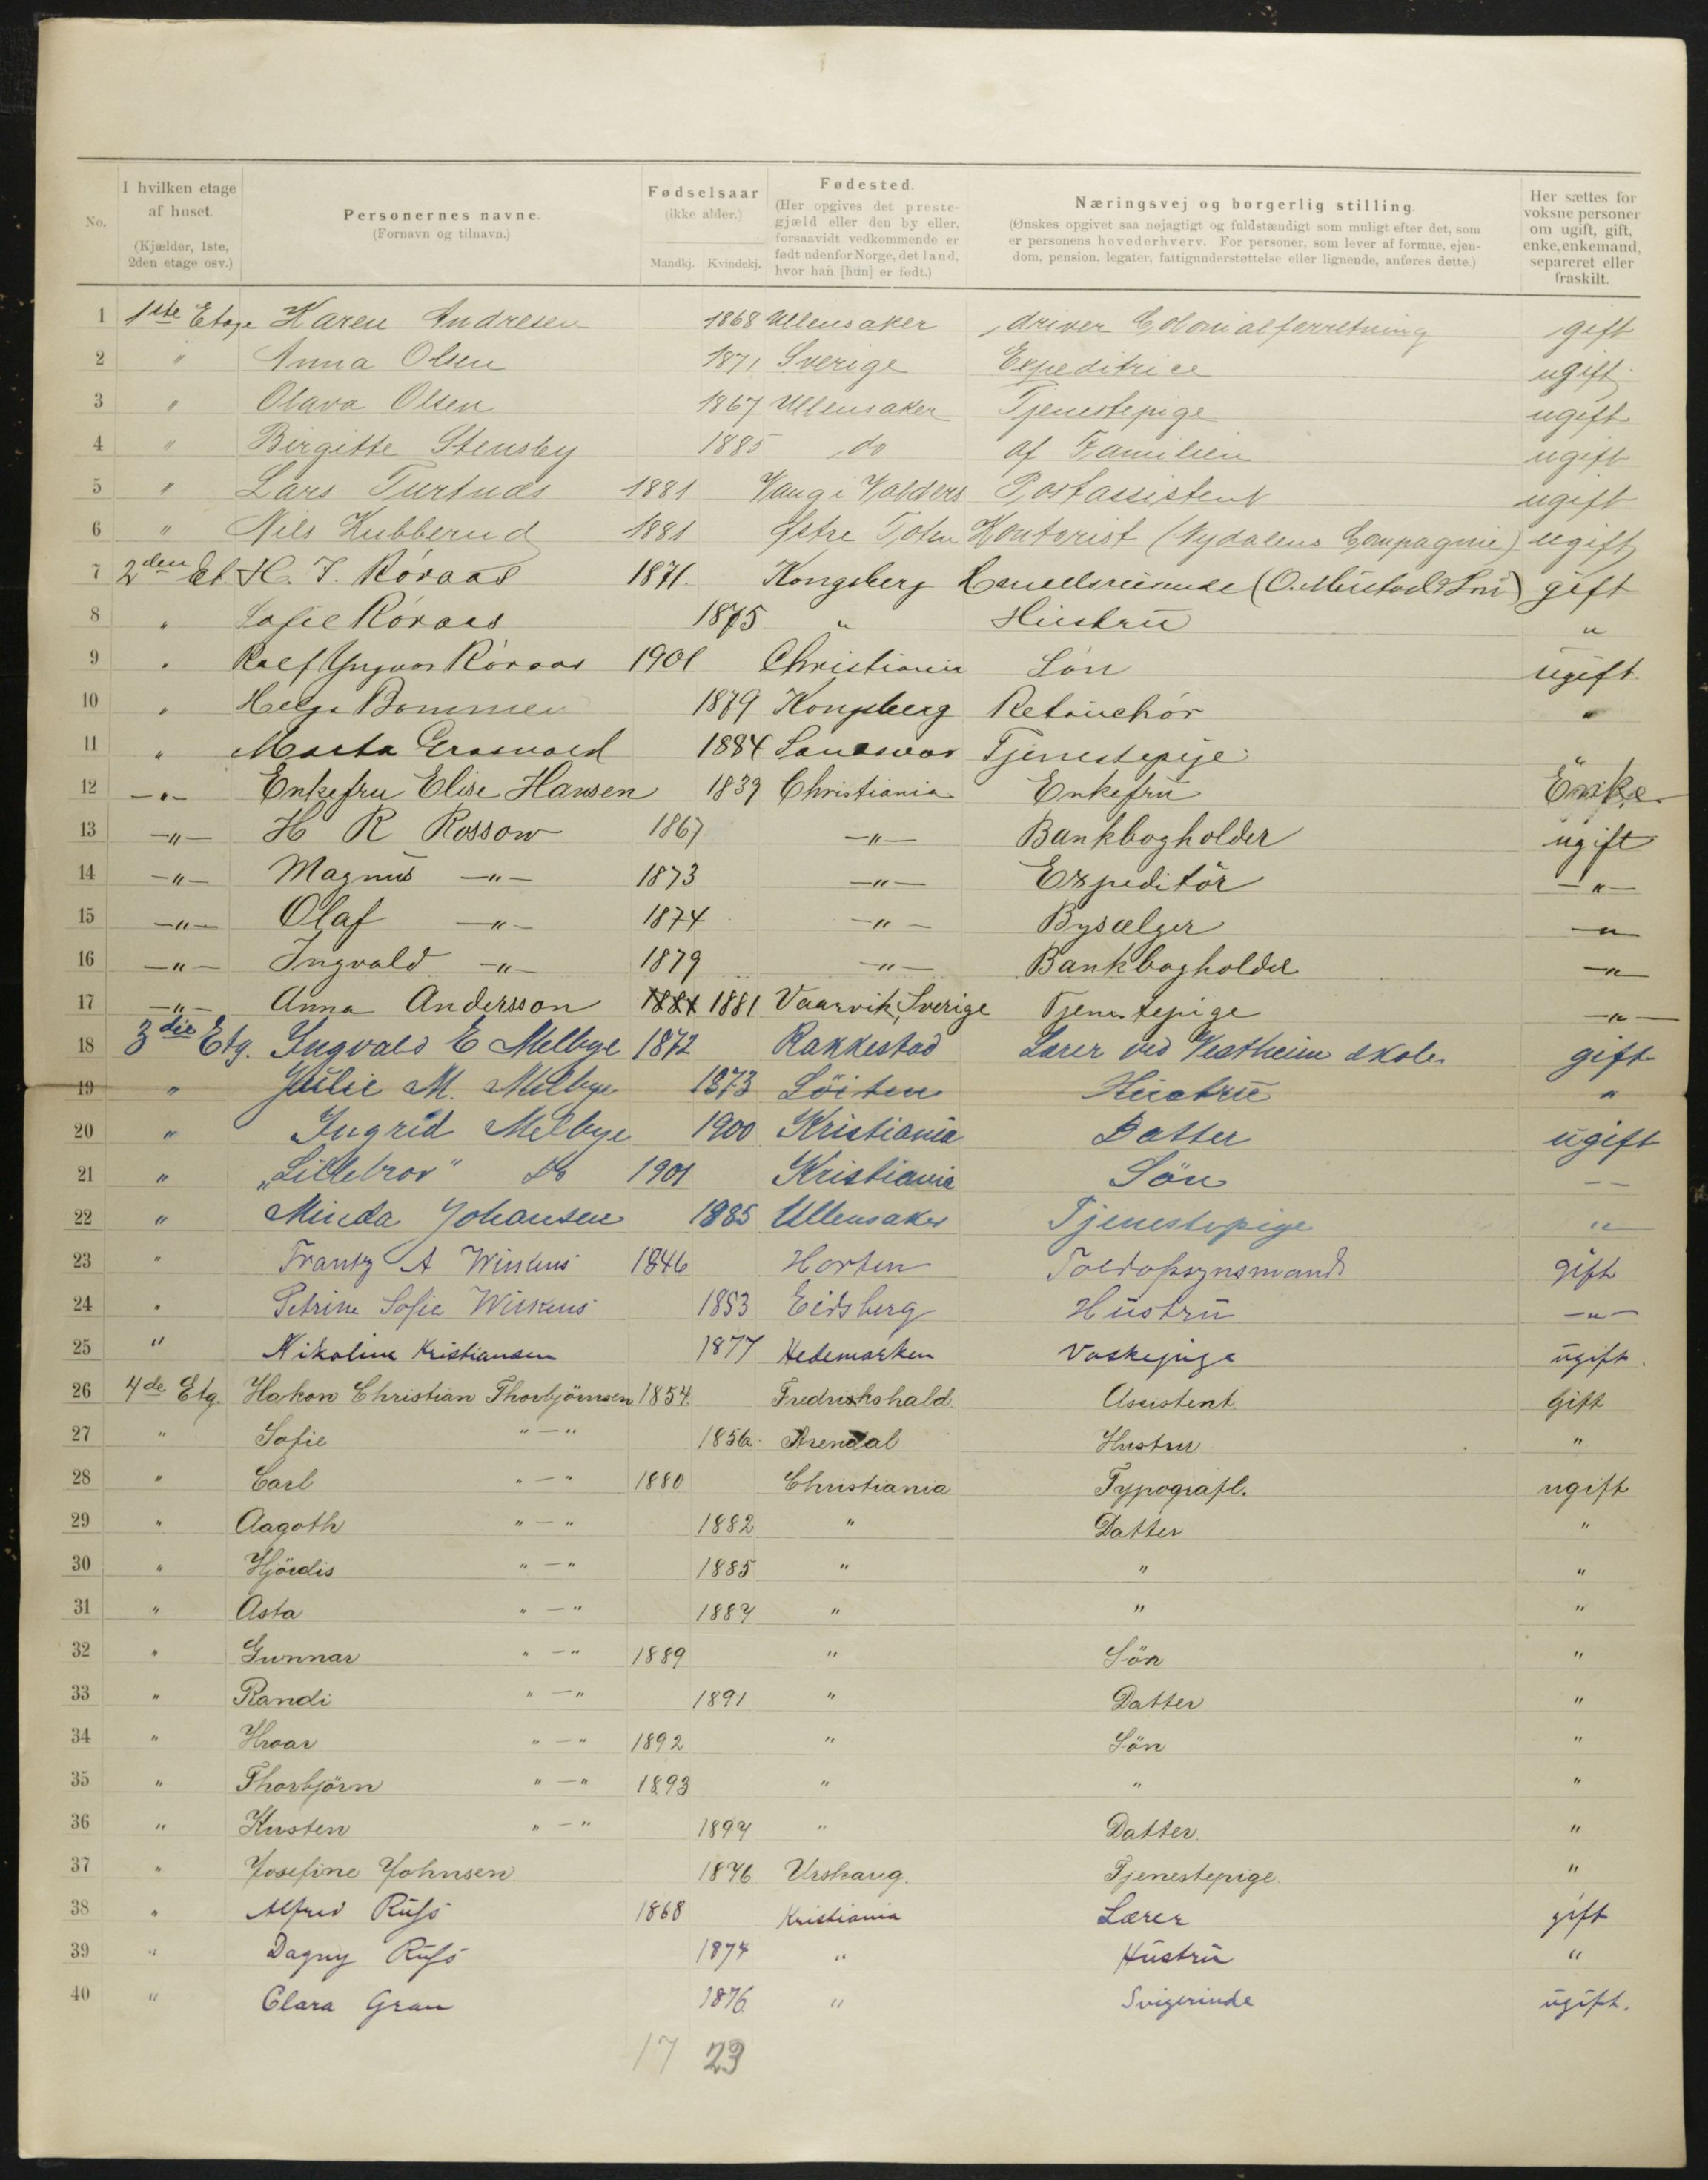 No.
I hvilken etage af huset. (Kjælder, 1ste, 2den etage osv.)
Personernes navne. (Fornavn og tilnavn.)
Fødselsaar (ikke alder.) Mandkj. Kvindekj.
Fødested. (Her opgives det prestegjæld eller den by eller, forsaavidt vedkommende er født udenfor Norge, det land, hvor han [hun] er født.)
Næringsvej og borgerlig stilling. (Ønskes opgivet saa nøjagtigt og fuldstændigt som muligt efter det, som er personens hovederhverv. For personer, som lever af formue, ejendom, pension, legater, fattigunderstøttelse eller lignende, anføres dette.)
Her sættes for voksne personer om ugift, gift, enke, enkemand, separeret eller fraskilt.
1 1ste Etage Karen Andresen 1868 Ullensaker driver Colonialforretning gift
2 " Anna Olsen 1871 Sverige Expeditrice ugift
3 " Olava Olsen 1867 Ullensaker Tjenestepige ugift
4 " Birgitte Stensby 1885 do af Familien ugift
5 " Lars 1881 Vang i Valders Postassistent ugift
6 " Nils Kubberud 1881 Østre Toten Kontorist (Nydalens Compagnie) ugift
7 2den Et. H. J. Røraas 1871. Kongsberg (O. Mustad & Søn) gift
8 " Sofie Røraas 1875 " Hustru "
9 " Ralf Yngvar Røraas 1901 Christiania Søn ugift
10 " Helga Bommen 1879 Kongsberg Retouchør "
11 " Marta 1884 Sandsvær Tjenestepige "
12 -"- Enkefru Elise Hansen 1839 Christiania Enkefru Enke
13 -"- H R Rossow 1867 -"- Bankbogholder ugift
14 -"- Magnus -"- 1873 -"- Expeditör -"-
15 -"- Olaf -"- 1874 -"- Bysælger -"-
16 -"- Ingvald -"- 1879 -"- Bankbogholder -"-
17 -"- Anna Andersson 1881 1881 Vaarvik, Sverige Tjenestepige -"-
18 3die Etg. Ingvald E Melbye 1872 Rakkestad Lærer ved Vestheim skole gift
19 " Julie M. Melbye 1873 Löiten Hustru "
20 " Ingrid Melbye 1900 Kristiania Datter ugift
21 " "Lillebror" Do 1901 Kristiania Sön --
22 " Minda Johansen 1885 Ullensaker Tjenestepige "
23 " Frantz A 1846 Horten Toldopsynsmand gift
24 " Petrine Sofie 1853 Eidsberg Hustru -"-
25 " Nikoline Kristiansen 1877 Hedemarken Vaskepige ugift.
26 4de Etg. Hakon Christian Thorbjörnsen 1854 Fredrikshald Assistent gift
27 " Sofie "-" 1856 Arendal Hustru "
28 " Carl "-" 1880 Christiania Typografl. ugift
29 " Aagoth "-" 1882 " Datter "
30 " Hjördis "-" 1885 " " "
31 " Asta "-" 1887 " " "
32 " Gunnar "-" 1889 " Sön "
33 " Randi "-" 1891 " Datter "
34 " Hroar "-" 1892 " Sön "
35 " Thorbjörn "-" 1893 " " "
36 " Kirsten "-" 1897 " Datter "
37 " Josefine Johnsen 1876 Urskaug. Tjenestepige "
38 " Alfred Russ 1868 Kristiania Lærer gift
39 " Dagny Russ 1874 " Hustru "
40 " Clara Gran 1876 " Svigerinde ugift.
17 23